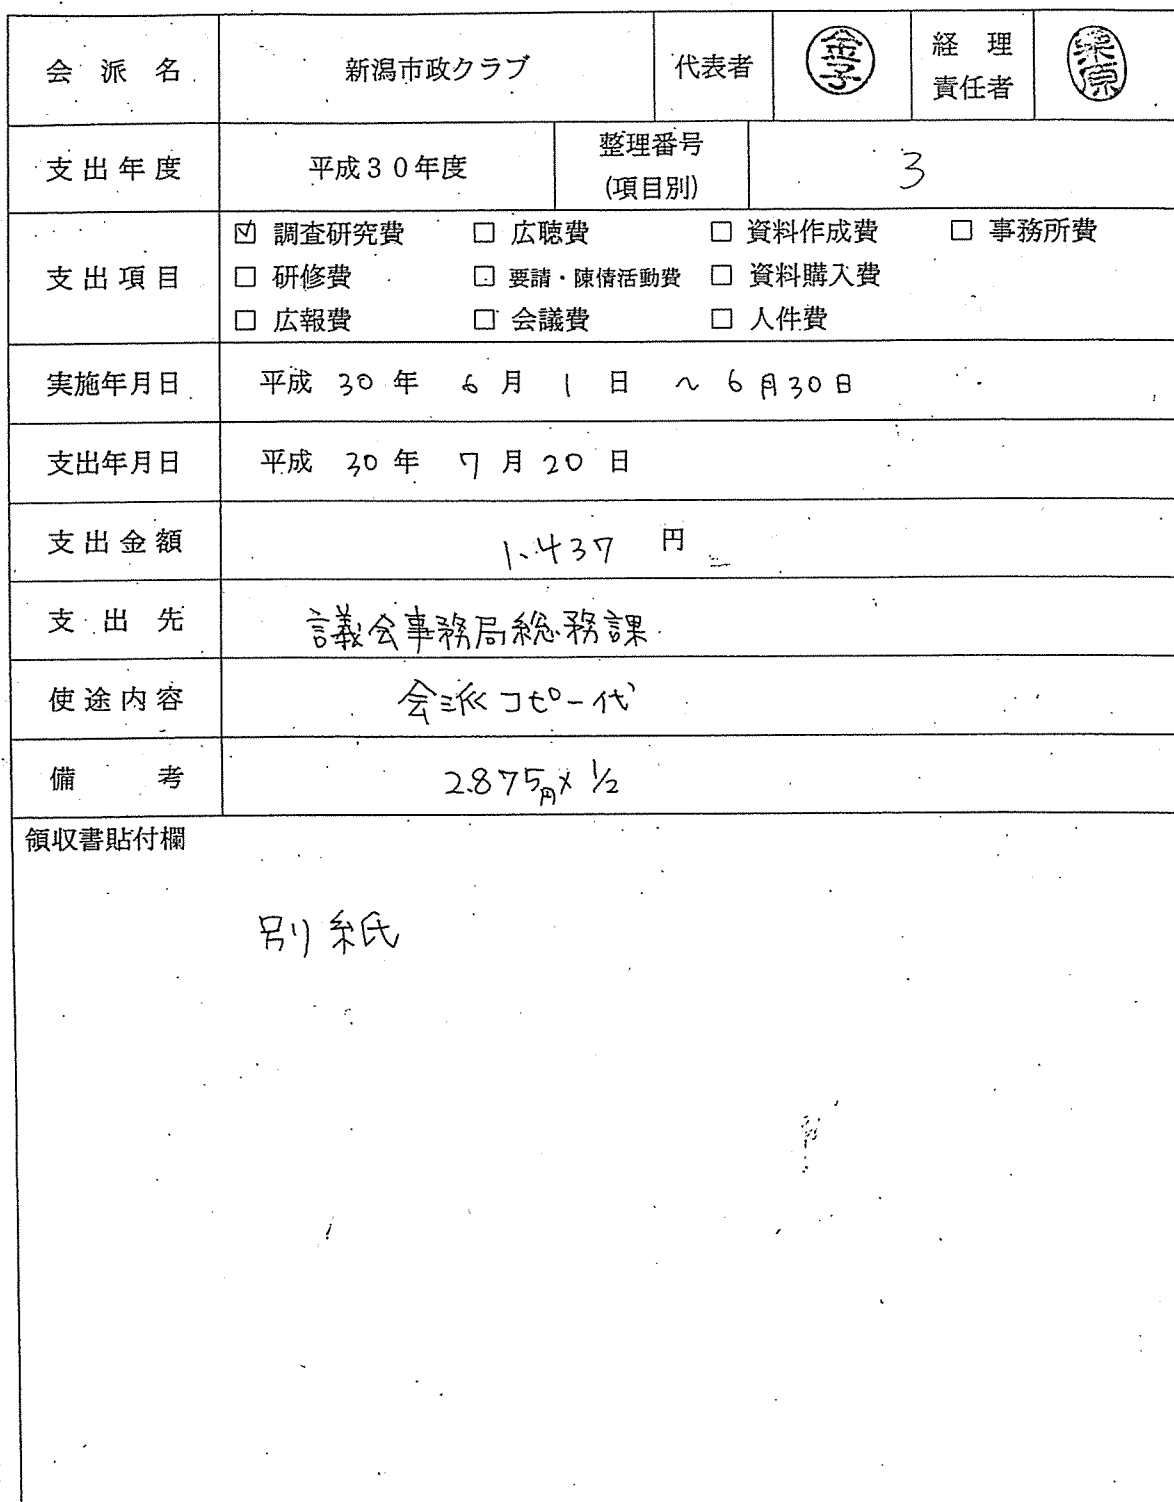 会派名 新潟市政クラブ 代表者 金子 経理責任者 栗原
支出年度 平成30年度 整理番号(項目別) 3
支出項目
☑ 調査研究費 □ 広聴費 □ 資料作成費 □ 事務所費
□ 研修費 □ 要請・陳情活動費 □ 資料購入費
□ 広報費 □ 会議費 □ 人件費
実施年月日 平成 30年 6月 1日 ~ 6月30日
支出年月日 平成 30年 7月20日
支出金額 1、437 円
支出先 議会事務局総務課
使途内容 会派コピー代
備考 2.875円×1/2
領収書貼付欄
別紙